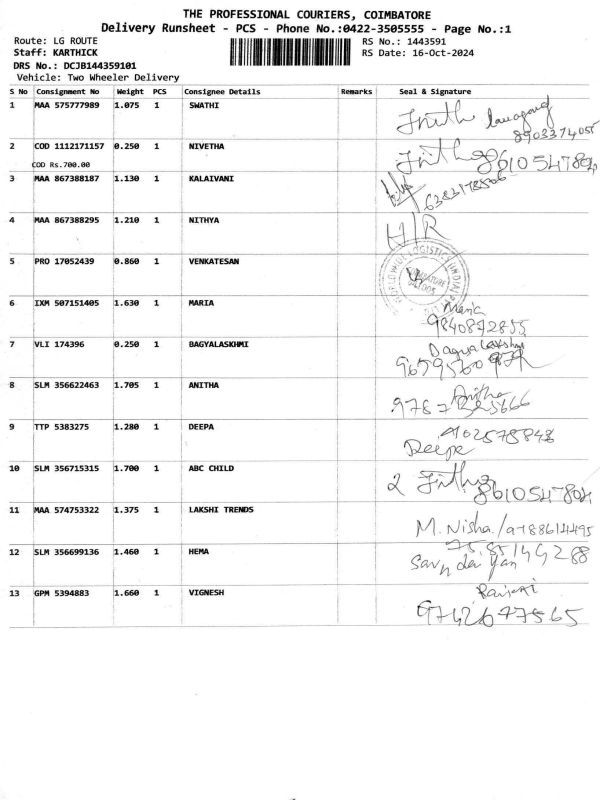 THE PROFESSIONAL COURIERS, COIMBATORE
Delivery Runsheet - PCS - Phone No.:0422-3505555 - Page No.:1
Route: LG ROUTE RS No.: 1443591
Staff: KARTHICK RS Date: 16-Oct-2024
DRS No.: DCJB144359101
Vehicle: Two Wheeler Delivery
S No Consignment No Weight PCS Consignee Details Remarks Seal & Signature
1 MAA 575777989 1.075 1 SWATHI
8903374055
2 COD 1112171157 0.250 1 NIVETHA
8610547804
COD Rs.700.00
3 MAA 867388187 1.130 1 KALAIVANI
4 MAA 867388295 1.210 1 NITHYA
H/R
5 PRO 17052439 0.860 1 VENKATESAN
6 IXM 507151405 1.630 1 MARIA
Maria
9840872855
7 VLI 174396 0.250 1 BAGYALASKHMI
8 SLM 356622463 1.705 1 ANITHA
Anitha
9 TTP 5383275 1.280 1 DEEPA
Deepa
10 SLM 356715315 1.700 1 ABC CHILD
2 8610547804
11 MAA 574753322 1.375 1 LAKSHI TRENDS
M. Nisha / 9788614495
12 SLM 356699136 1.460 1 HEMA
13 GPM 5394883 1.660 1 VIGNESH
9742677565